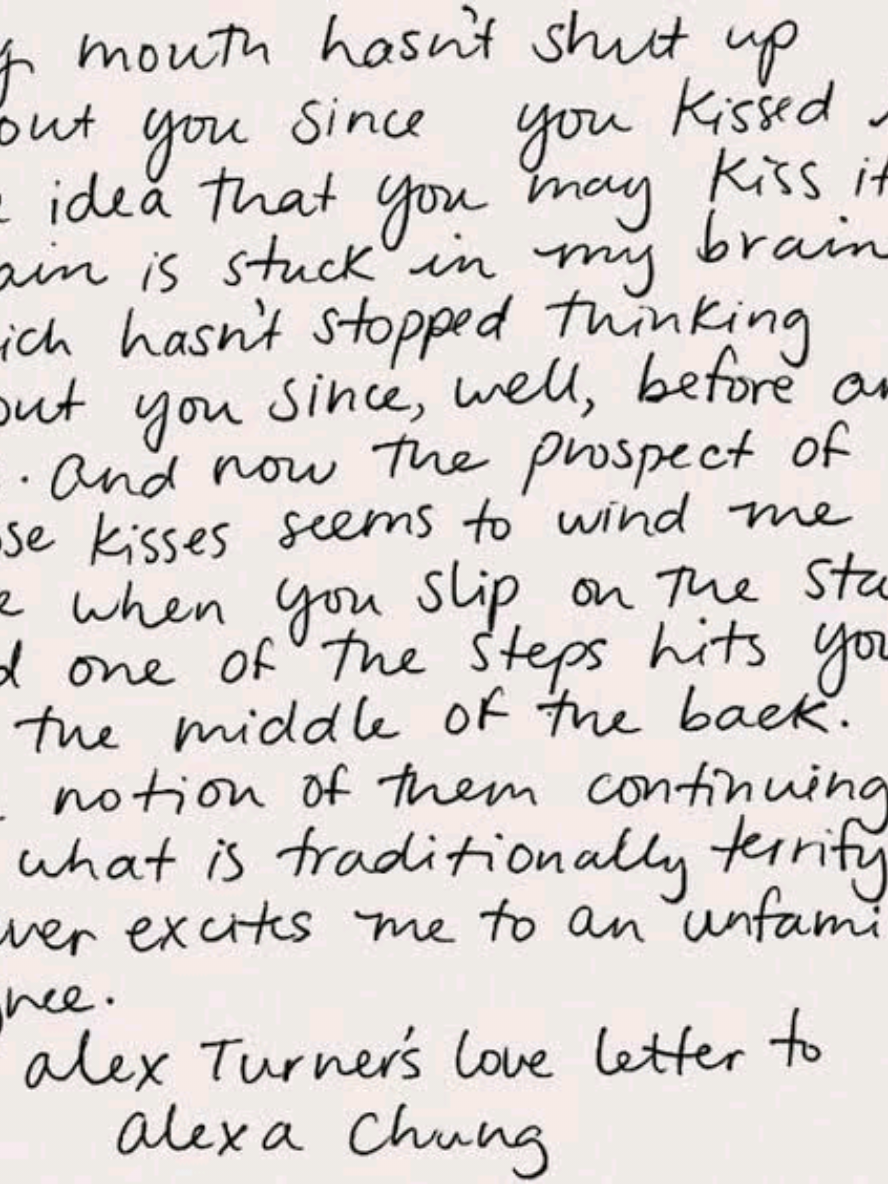 mouth hasn't shut up
out you since you kissed
idea that you may kiss it
ain is stuck in my brain
ich hasn't stopped thinking
out you since, well, before an
. And now the prospect of
ose kisses seems to wind me
e when you slip on the sta
d one of the steps hits you
the middle of the back.
notion of them continuing
what is traditionally terrify
ver excites me to an unfami
gree.
alex Turner's love letter to
alexa Chung